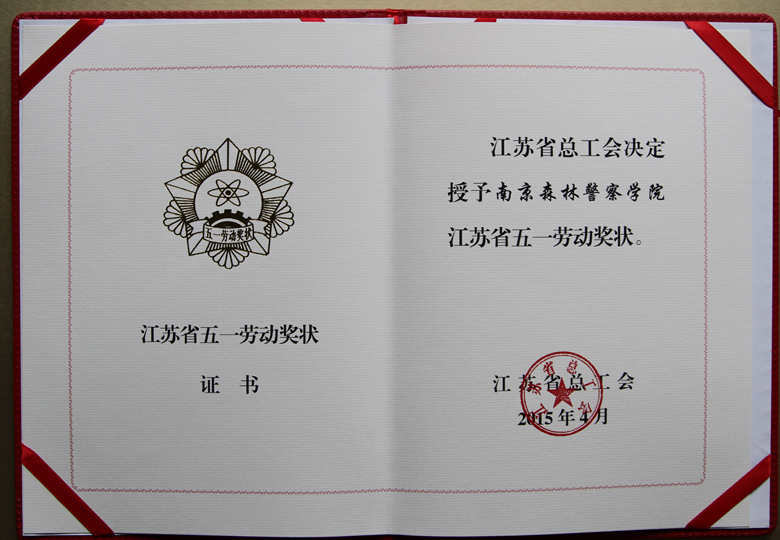 五一劳动奖状
江苏省五一劳动奖状
证书
江苏省总工会决定
授予南京森林警察学院
江苏省五一劳动奖状。
江苏省总工会
2015年4月
江苏省总工会